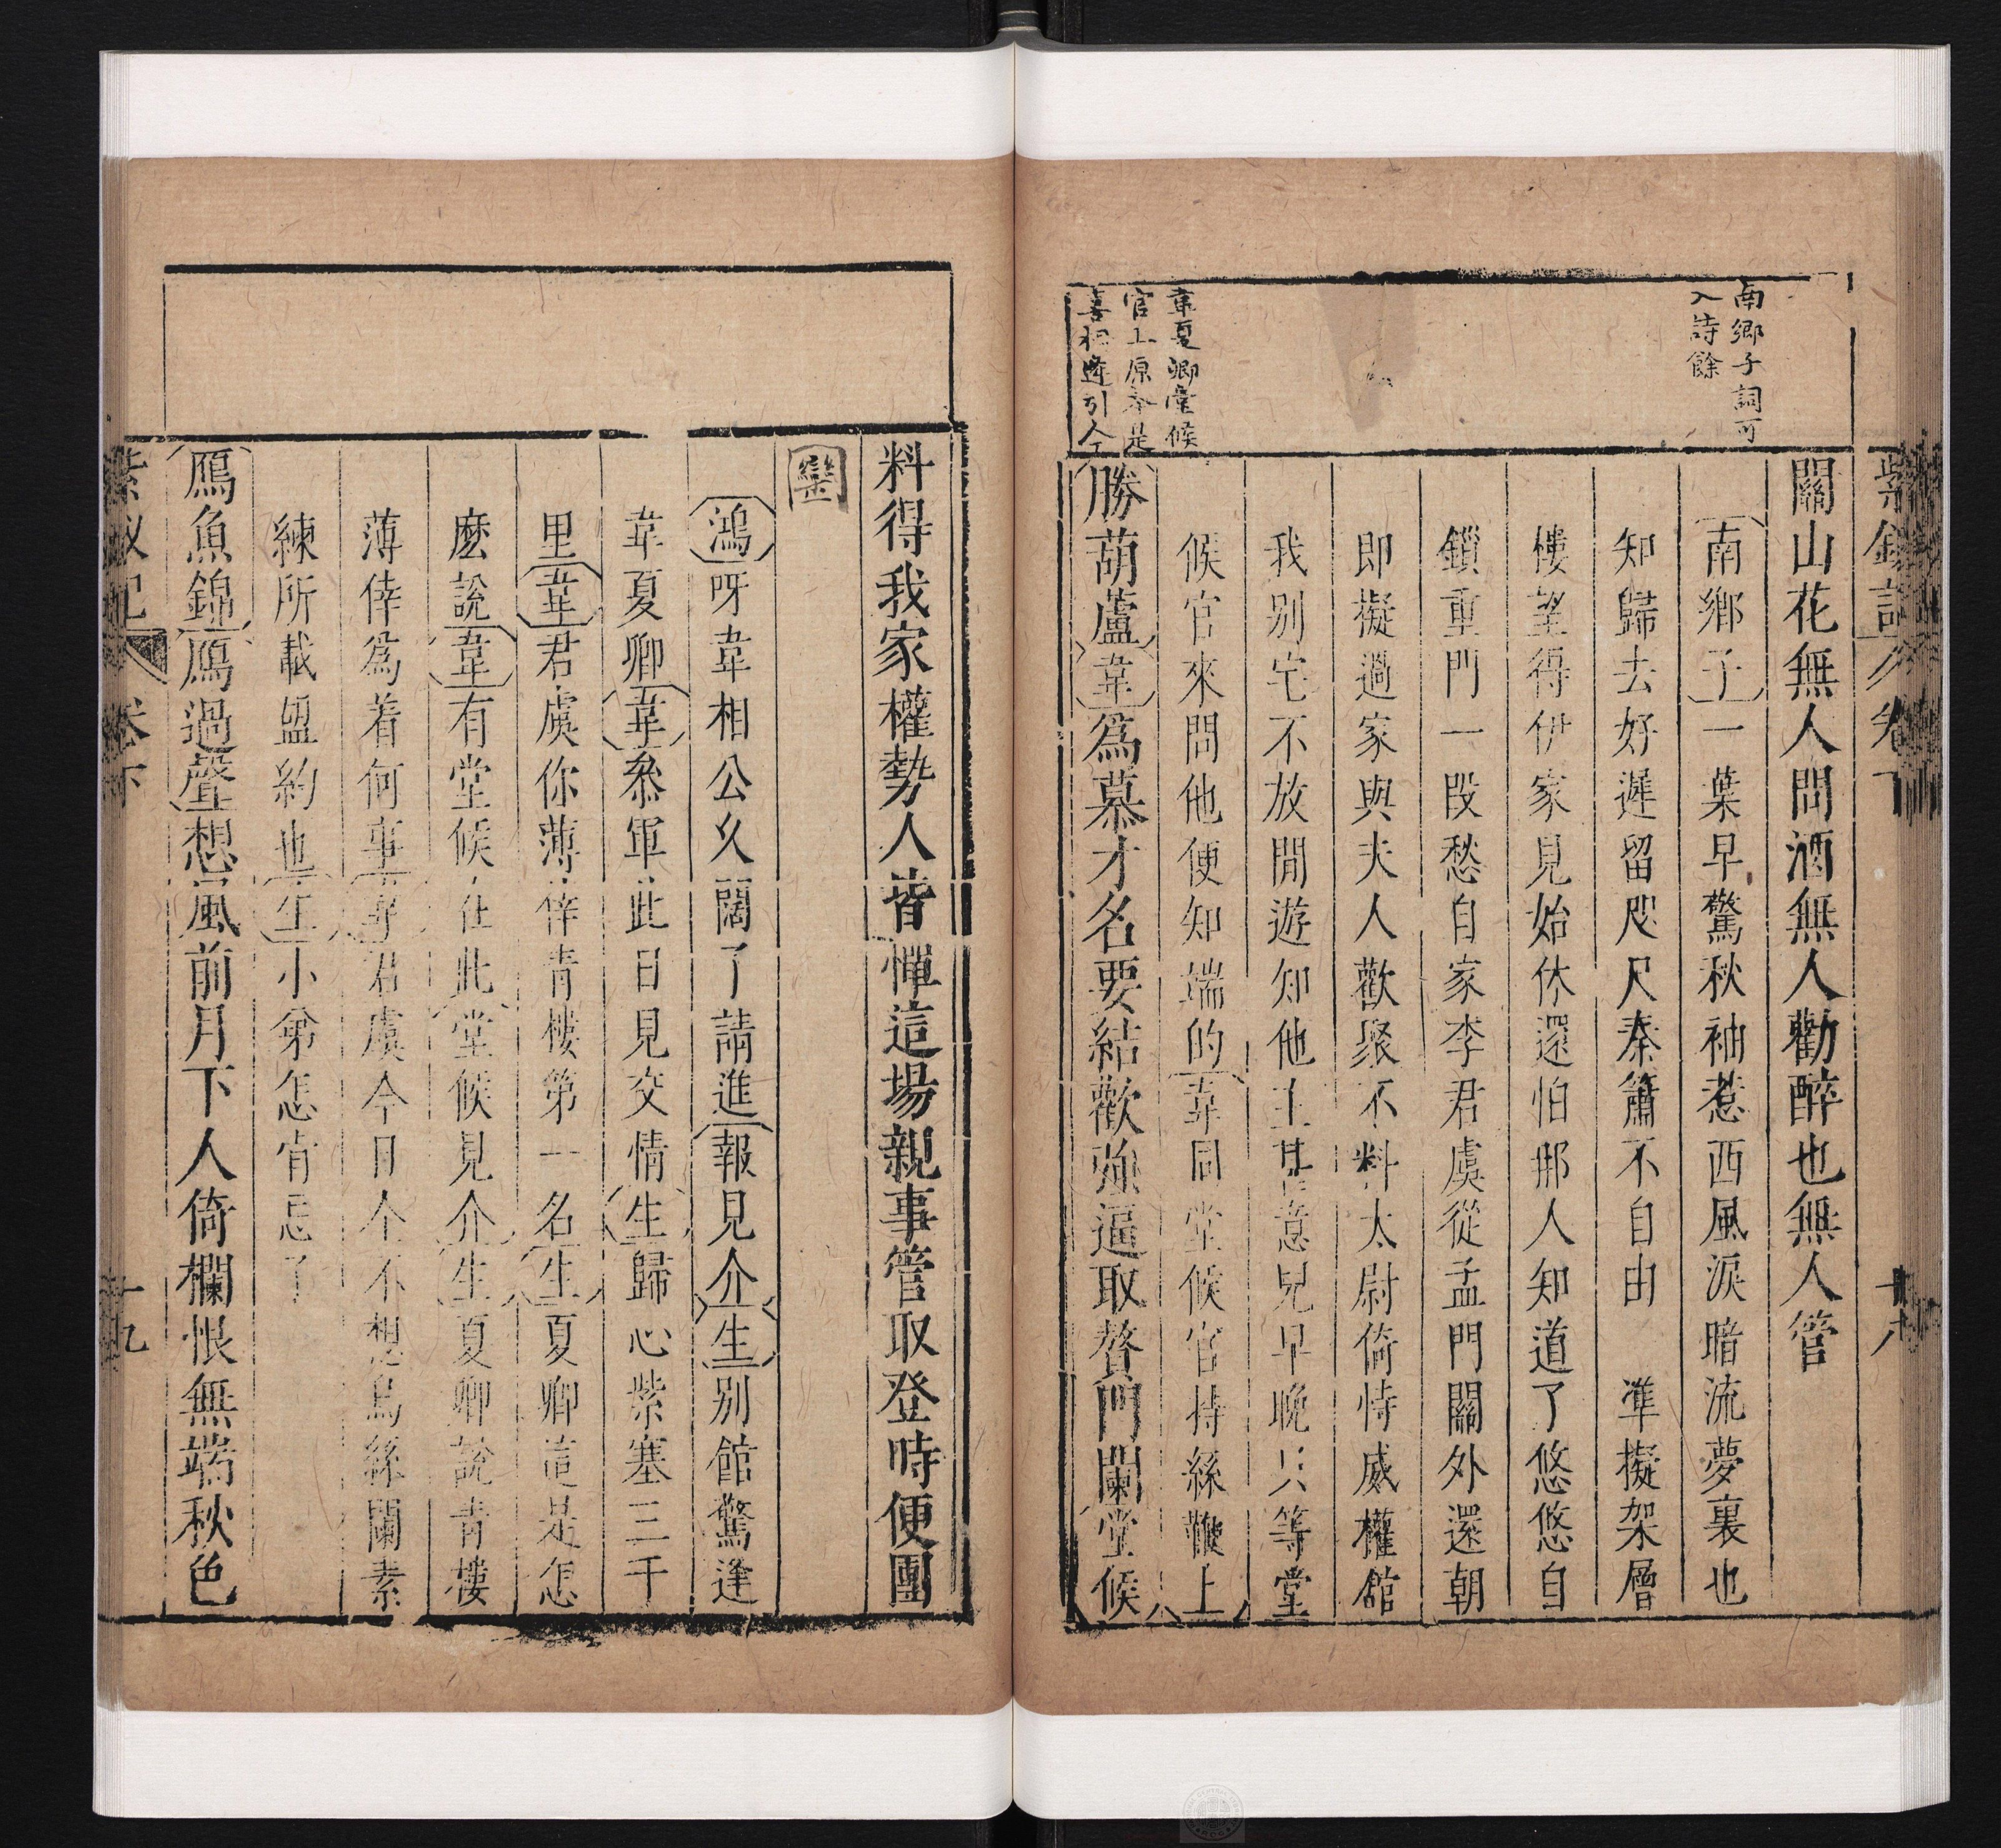 紫釵記 卷下 十八
南鄉子詞可
入詩餘
韋夏卿堂候
官上原本是
喜相逢引今
關山花無人問酒無人勸醉也無人管
南鄉子一葉早驚秋袖惹西風淚暗流夢裏也
知歸去好遲留咫尺秦簫不自由 準擬架層
樓望得伊家見始休還怕那人知道了悠悠自
鎖重門一段愁自家李君虞從孟門關外還朝
即擬過家與夫人歡聚不料太尉倚恃威權舘
我別宅不放閒遊知他主甚意兒早晚只等堂
候官來問他便知端的韋同堂候官持絲鞭上
勝葫蘆韋爲慕才名要結歡強逼取贅門闌堂候
料得我家權勢人皆憚這場親事管取登時便團
欒
鴻呀韋相公久闊了請進報見介生別館驚逢
韋夏卿韋叅軍此日見交情生歸心紫塞三千
里韋君虞你薄倖青樓第一名生夏卿這是怎
麽說韋有堂候在此堂候見介生夏卿說青樓
薄倖爲着何事韋君虞今日个不想烏絲闌素
練所載盟約也生小弟怎肯忘了
鴈魚錦鴈過聲想風前月下人倚欄恨無端秋色
紫釵記 卷下 十九